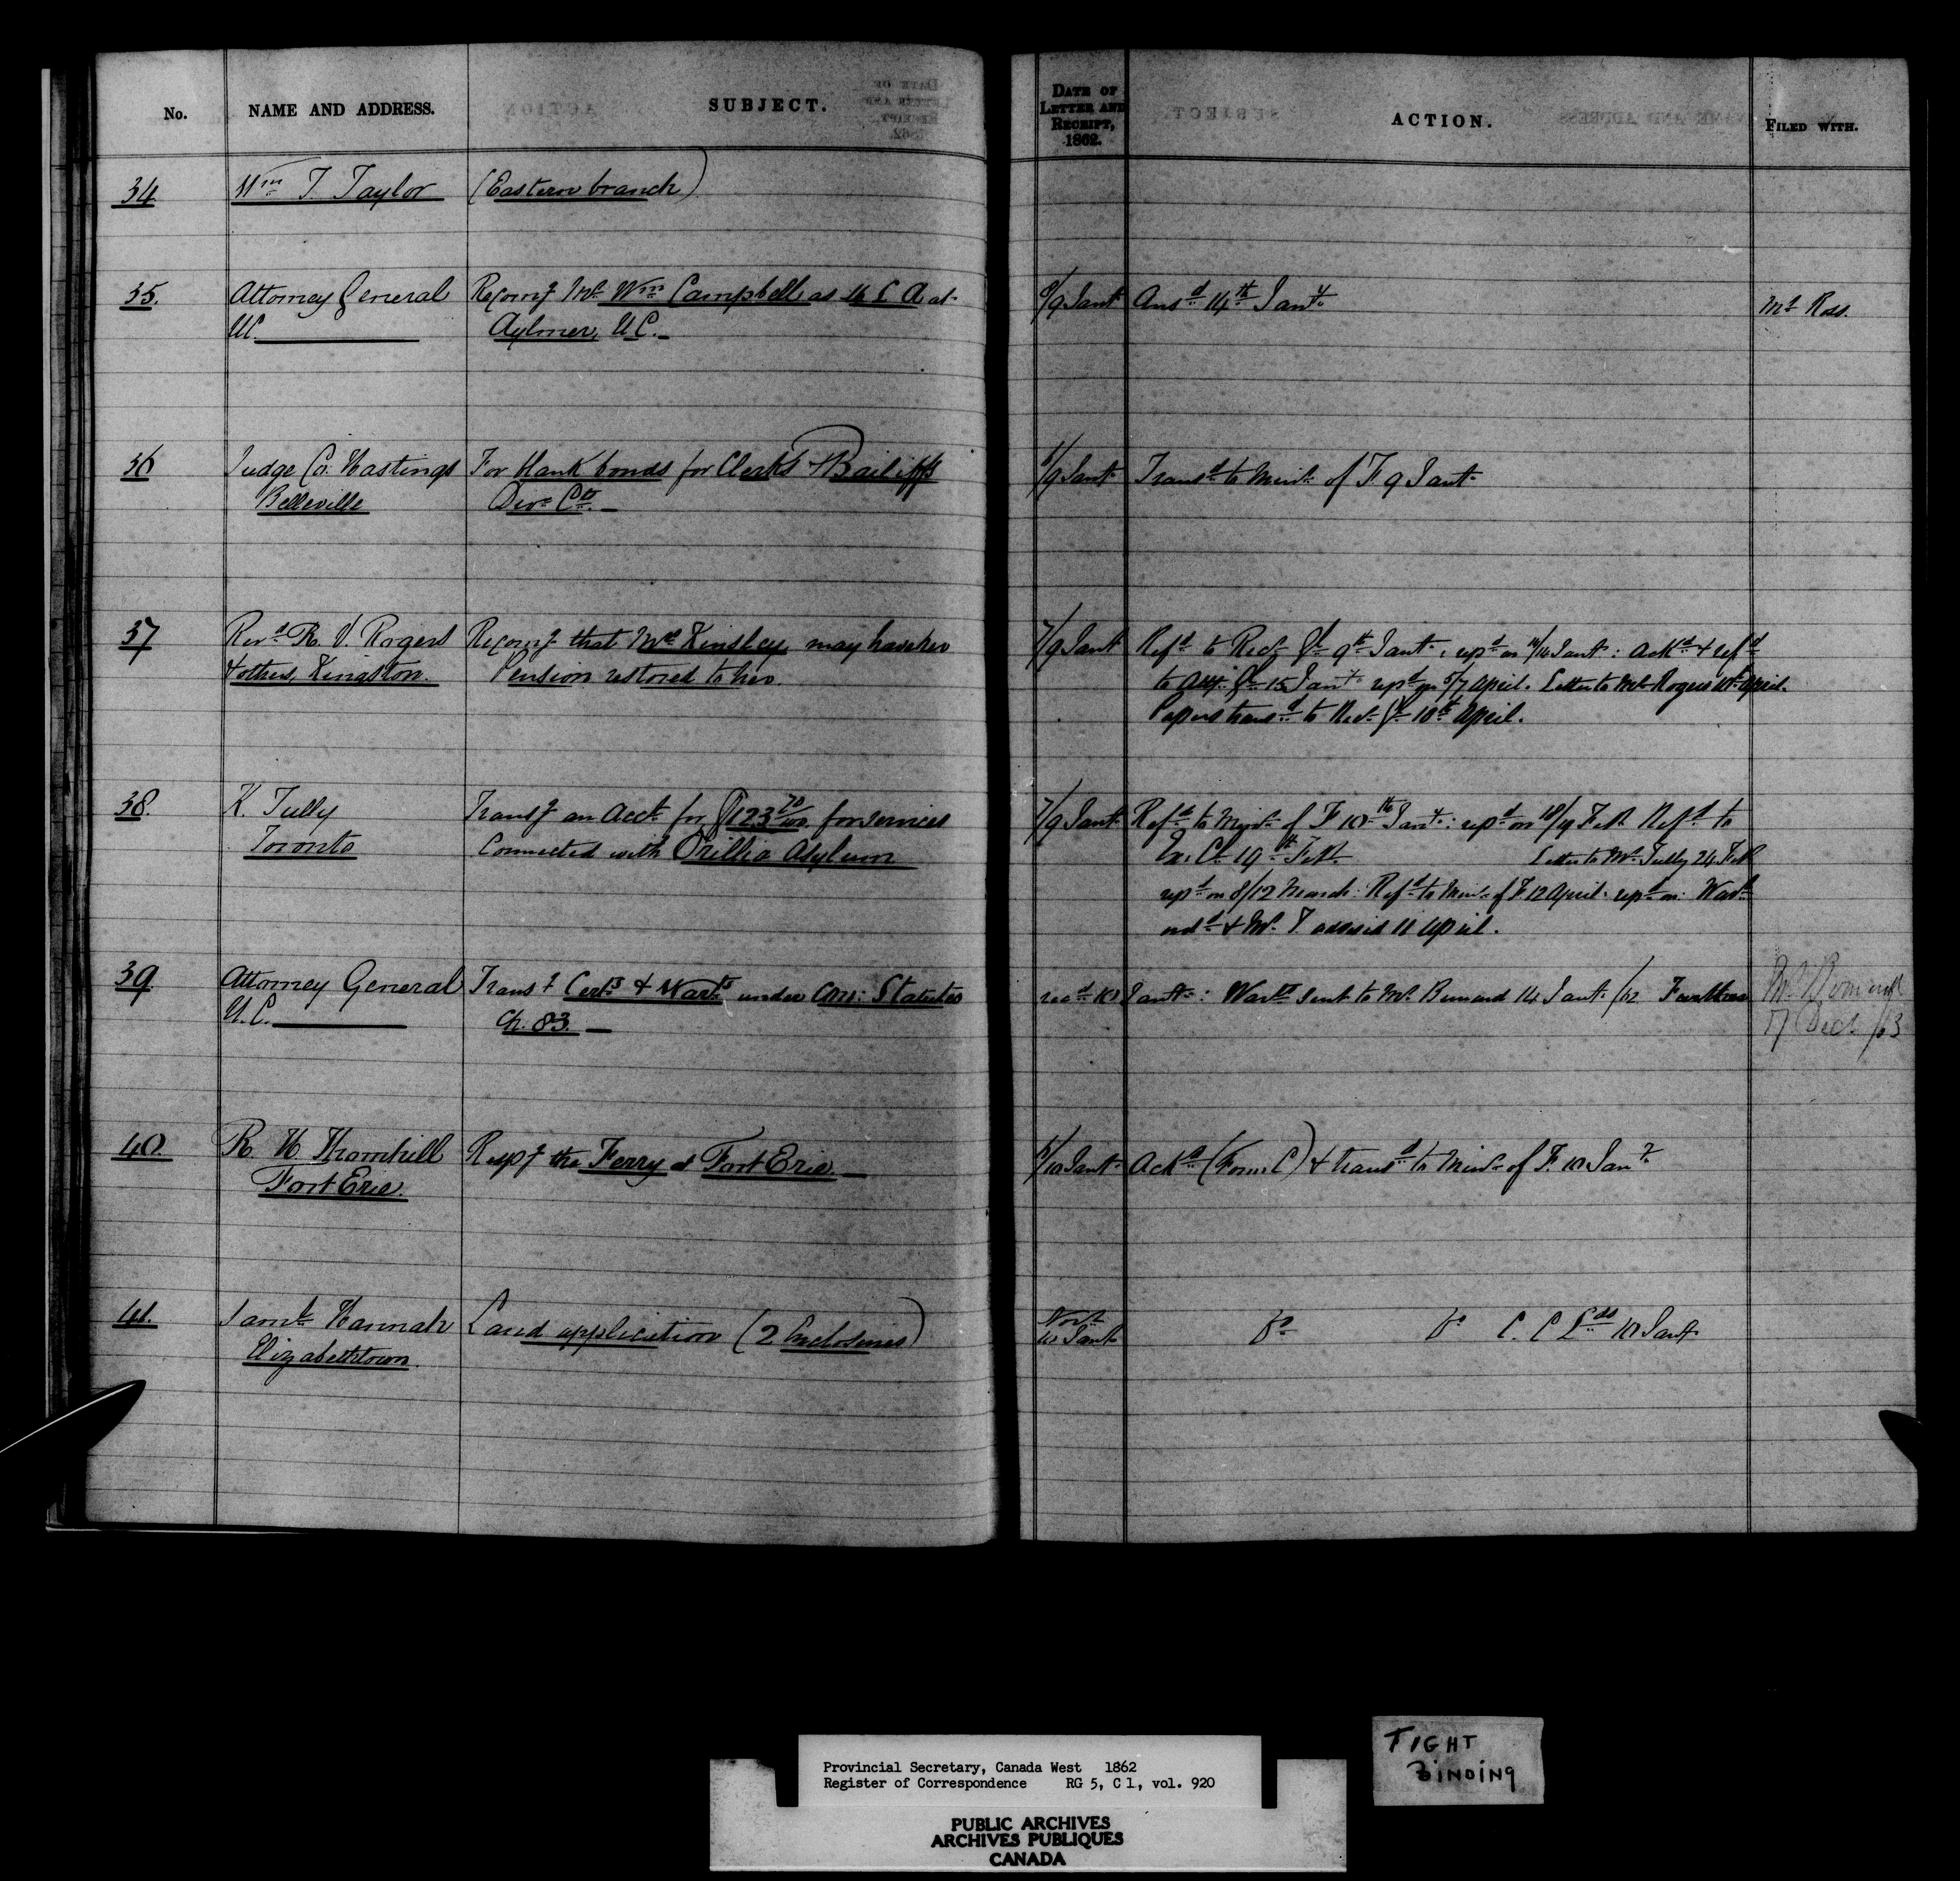 No. NAME AND ADDRESS. SUBJECT. DATE OF LETTER AND RECEIPT, 1862. ACTION. FILED WITH.
34 Wm T. Taylor (Eastern branch)
35. Attorney General Recomg Mr Wm Campbell as at 8/9 Jany Ansd 14th Jany Mr Ross.
UC. Aylmer, UC.
36 Judge Co. Hastings For blank bonds for Clerks & Bailiffs /9 Jany Transd to Minr of F 9 Jany
Belleville Divn Cts
37 Revd R. V. Rogers Recomg that Mrs Kinsley may have her 7/9 Jany Refd to Recr Gl 9th Jany: repd on 14 Jany: Ackd & refd
& others, Kingston. Pension restored to her. to Gl 15 Jany repd on 5/7 April. Letter to Mr Rogers April.
Papers transd to Recr Gl 10th April.
38. K. Tully Transg an Acct for $123 70/100 for services 7/9 Jany Refd to Minr of F 10th Jany: repd on 18/19 Feb. Refd to
Toronto Connected with Orillia Asylum Ex. Cl 19th Feb. Letter to Mr Tully 24 Feb
repd on 8/12 March: Refd to Minr of F 12 April. repd on: Wart
ordd & Mr T. advised 11 April.
39 Attorney General Transg Certs & Warts under Con: Statutes recd 10 Jany: Warts sent to Mr Bernard 14 Jany /62
U.C. Ch. 83. 17 Decr /63
40. R. H. Thornhill Respg the Ferry at Fort Erie /10 Jany Ackd (Form C) & transd to Minr of F 10 Jany
Fort Erie.
41. Saml Hannah Land application (2 Enclosures) No dt Do Do C. C Lds 10 Jany
Elizabethtown. 10 Jany
Provincial Secretary, Canada West 1862
Register of Correspondence RG 5, C 1, vol. 920
PUBLIC ARCHIVES
ARCHIVES PUBLIQUES
CANADA
TIGHT
BINDING